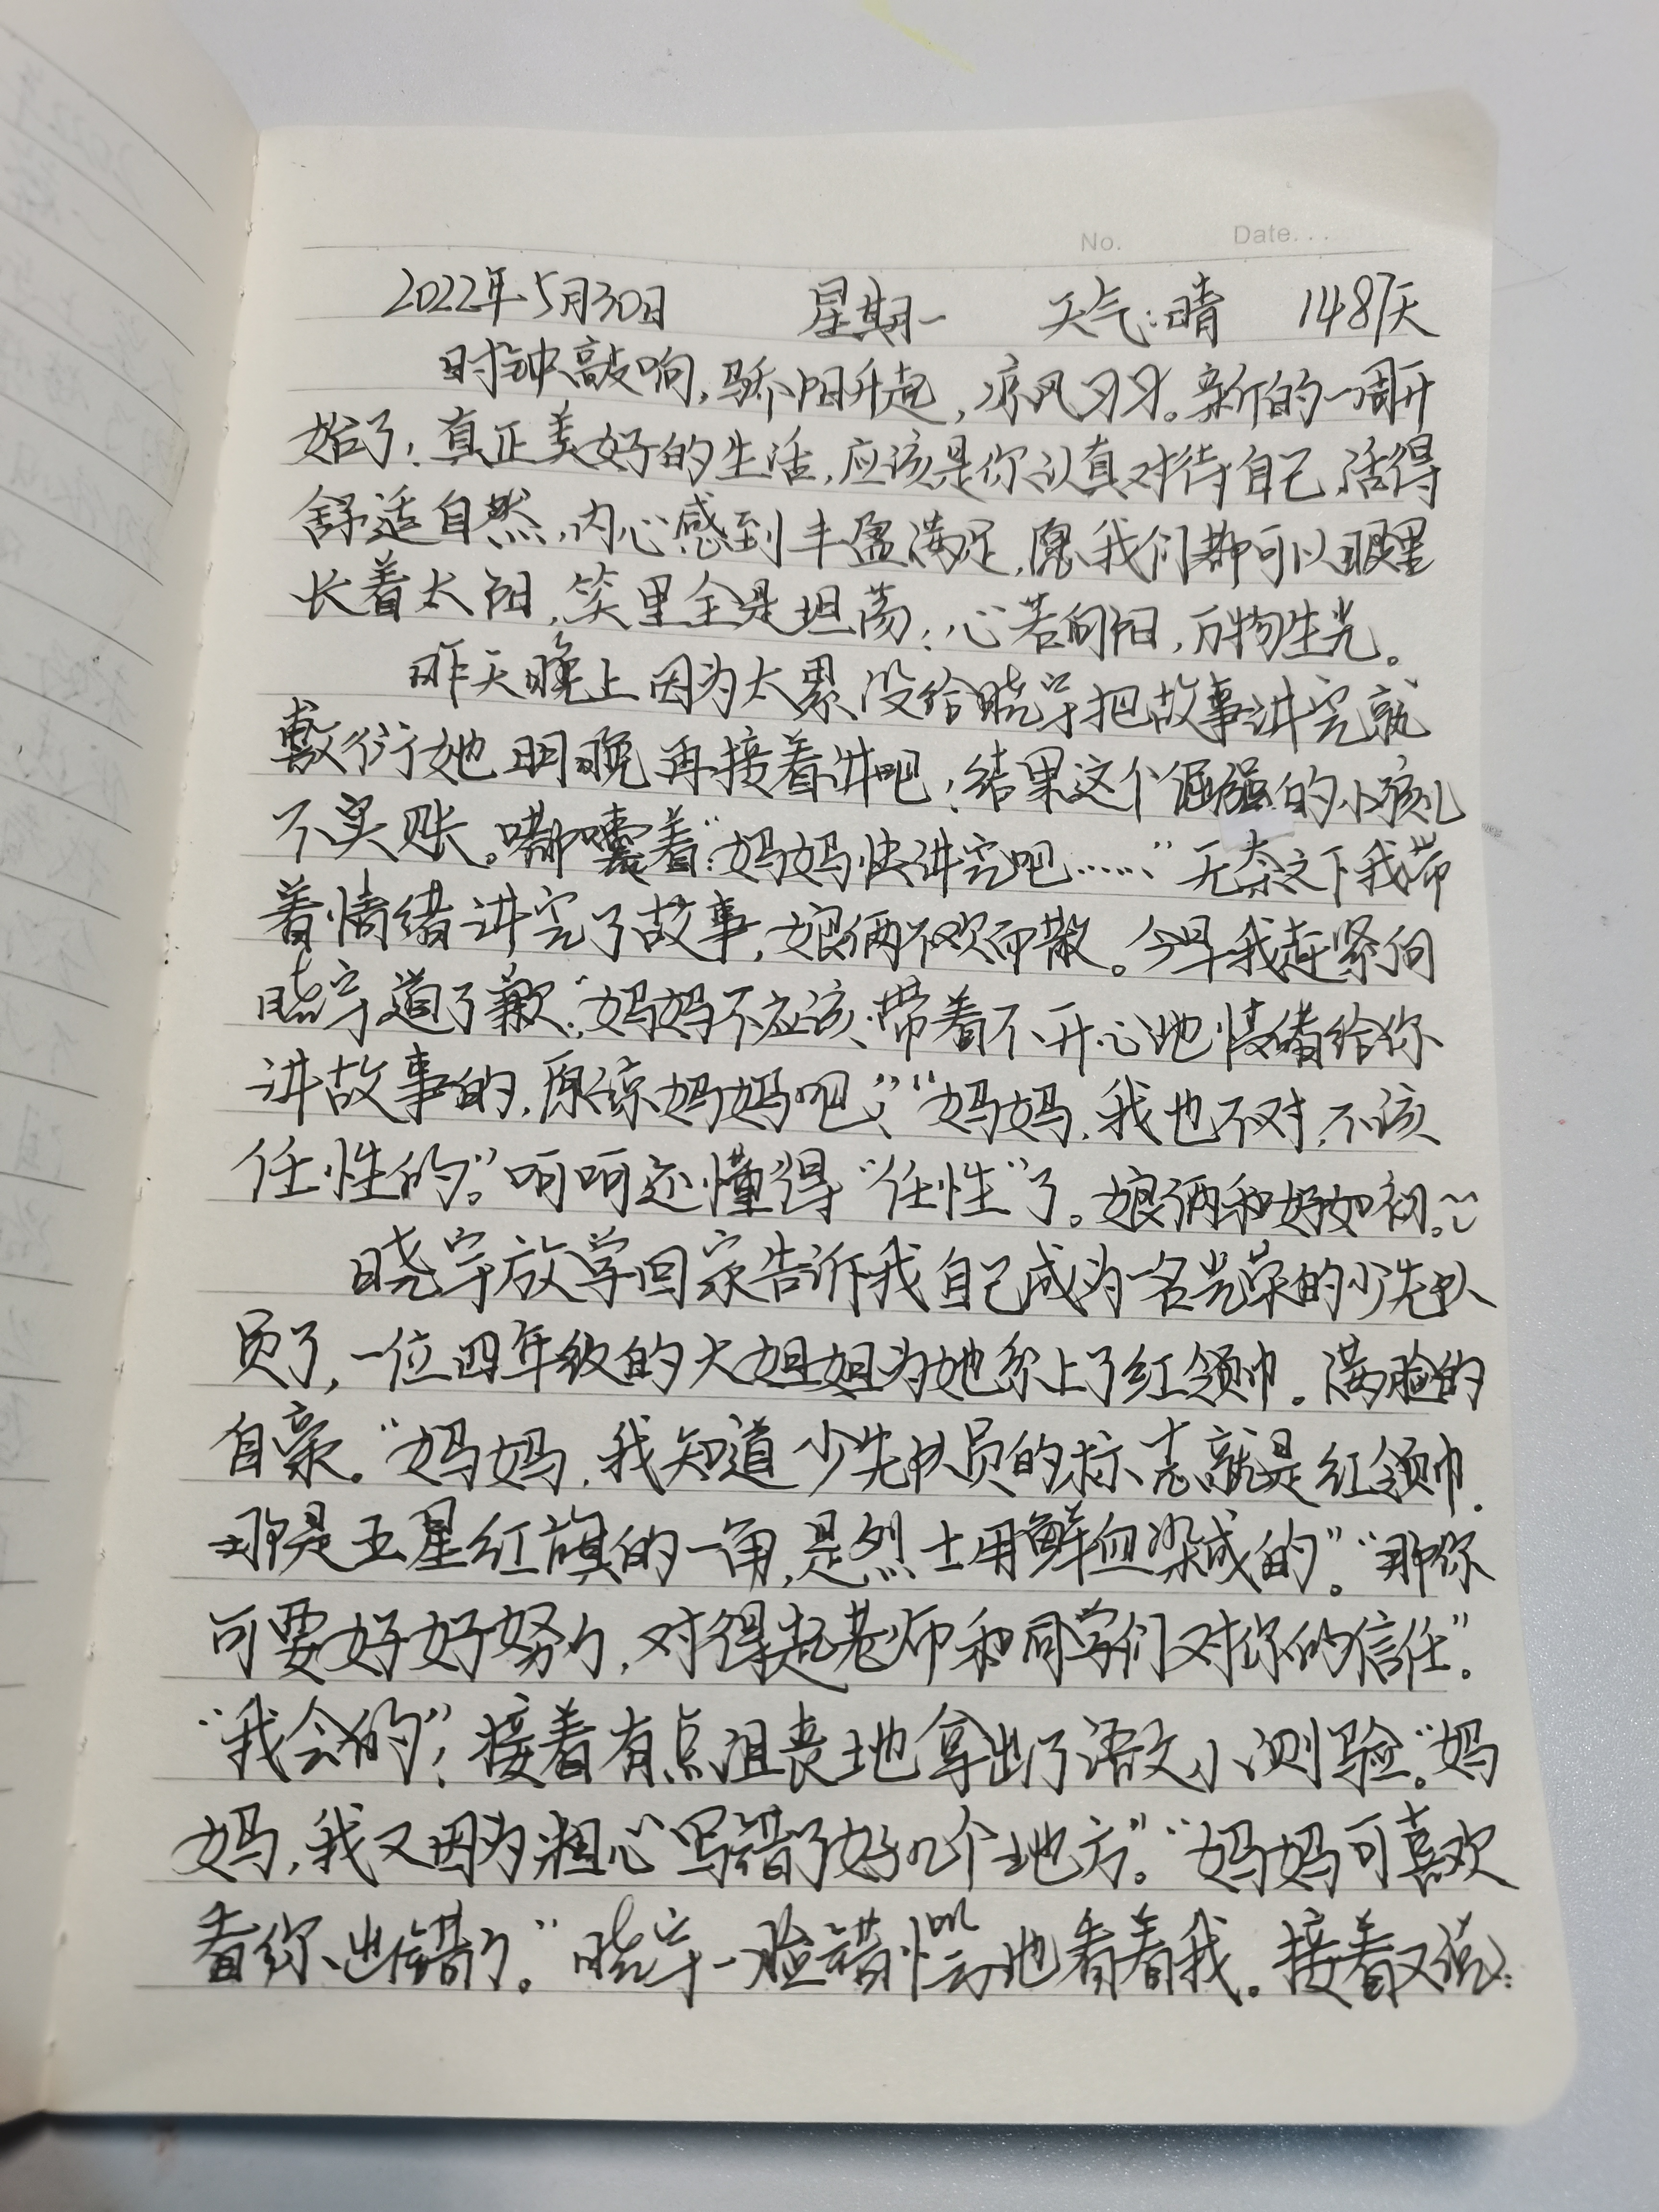 No. Date...
2022年5月30日 星期一 天气:晴 1487天
时钟敲响,骄阳升起,凉风习习。新的一周开
始了!真正美好的生活,应该是你认真对待自己,活得
舒适自然,内心感到丰盈满足,愿我们都可以眼里
长着太阳,笑里全是坦荡!心若向阳,万物生光。
昨天晚上因为太累没给晓宇把故事讲完就
敷衍她明晚再接着讲吧!结果这个倔强的小孩儿
不买账。嘟囔着:“妈妈快讲完吧……”无奈之下我带
着情绪讲完了故事,娘俩不欢而散。今早我赶紧向
晓宇道了歉:“妈妈不应该带着不开心地情绪给你
讲故事的,原谅妈妈吧!”“妈妈,我也不对,不该
任性的。”呵呵还懂得“任性”了。娘俩和好如初。
晓宇放学回家告诉我自己成为一名光荣的少先队
员了,一位四年级的大姐姐为她系上了红领巾。满脸的
自豪。“妈妈,我知道少先队员的标志就是红领巾.
那是五星红旗的一角,是烈士用鲜血染成的”。“那你
可要好好努力,对得起老师和同学们对你的信任”。
“我会的”!接着有点沮丧地拿出了语文小测验。“妈
妈,我又因为粗心写错了好几个地方。”“妈妈可喜欢
看你出错了。”晓宇一脸错愕地看着我。接着又说: